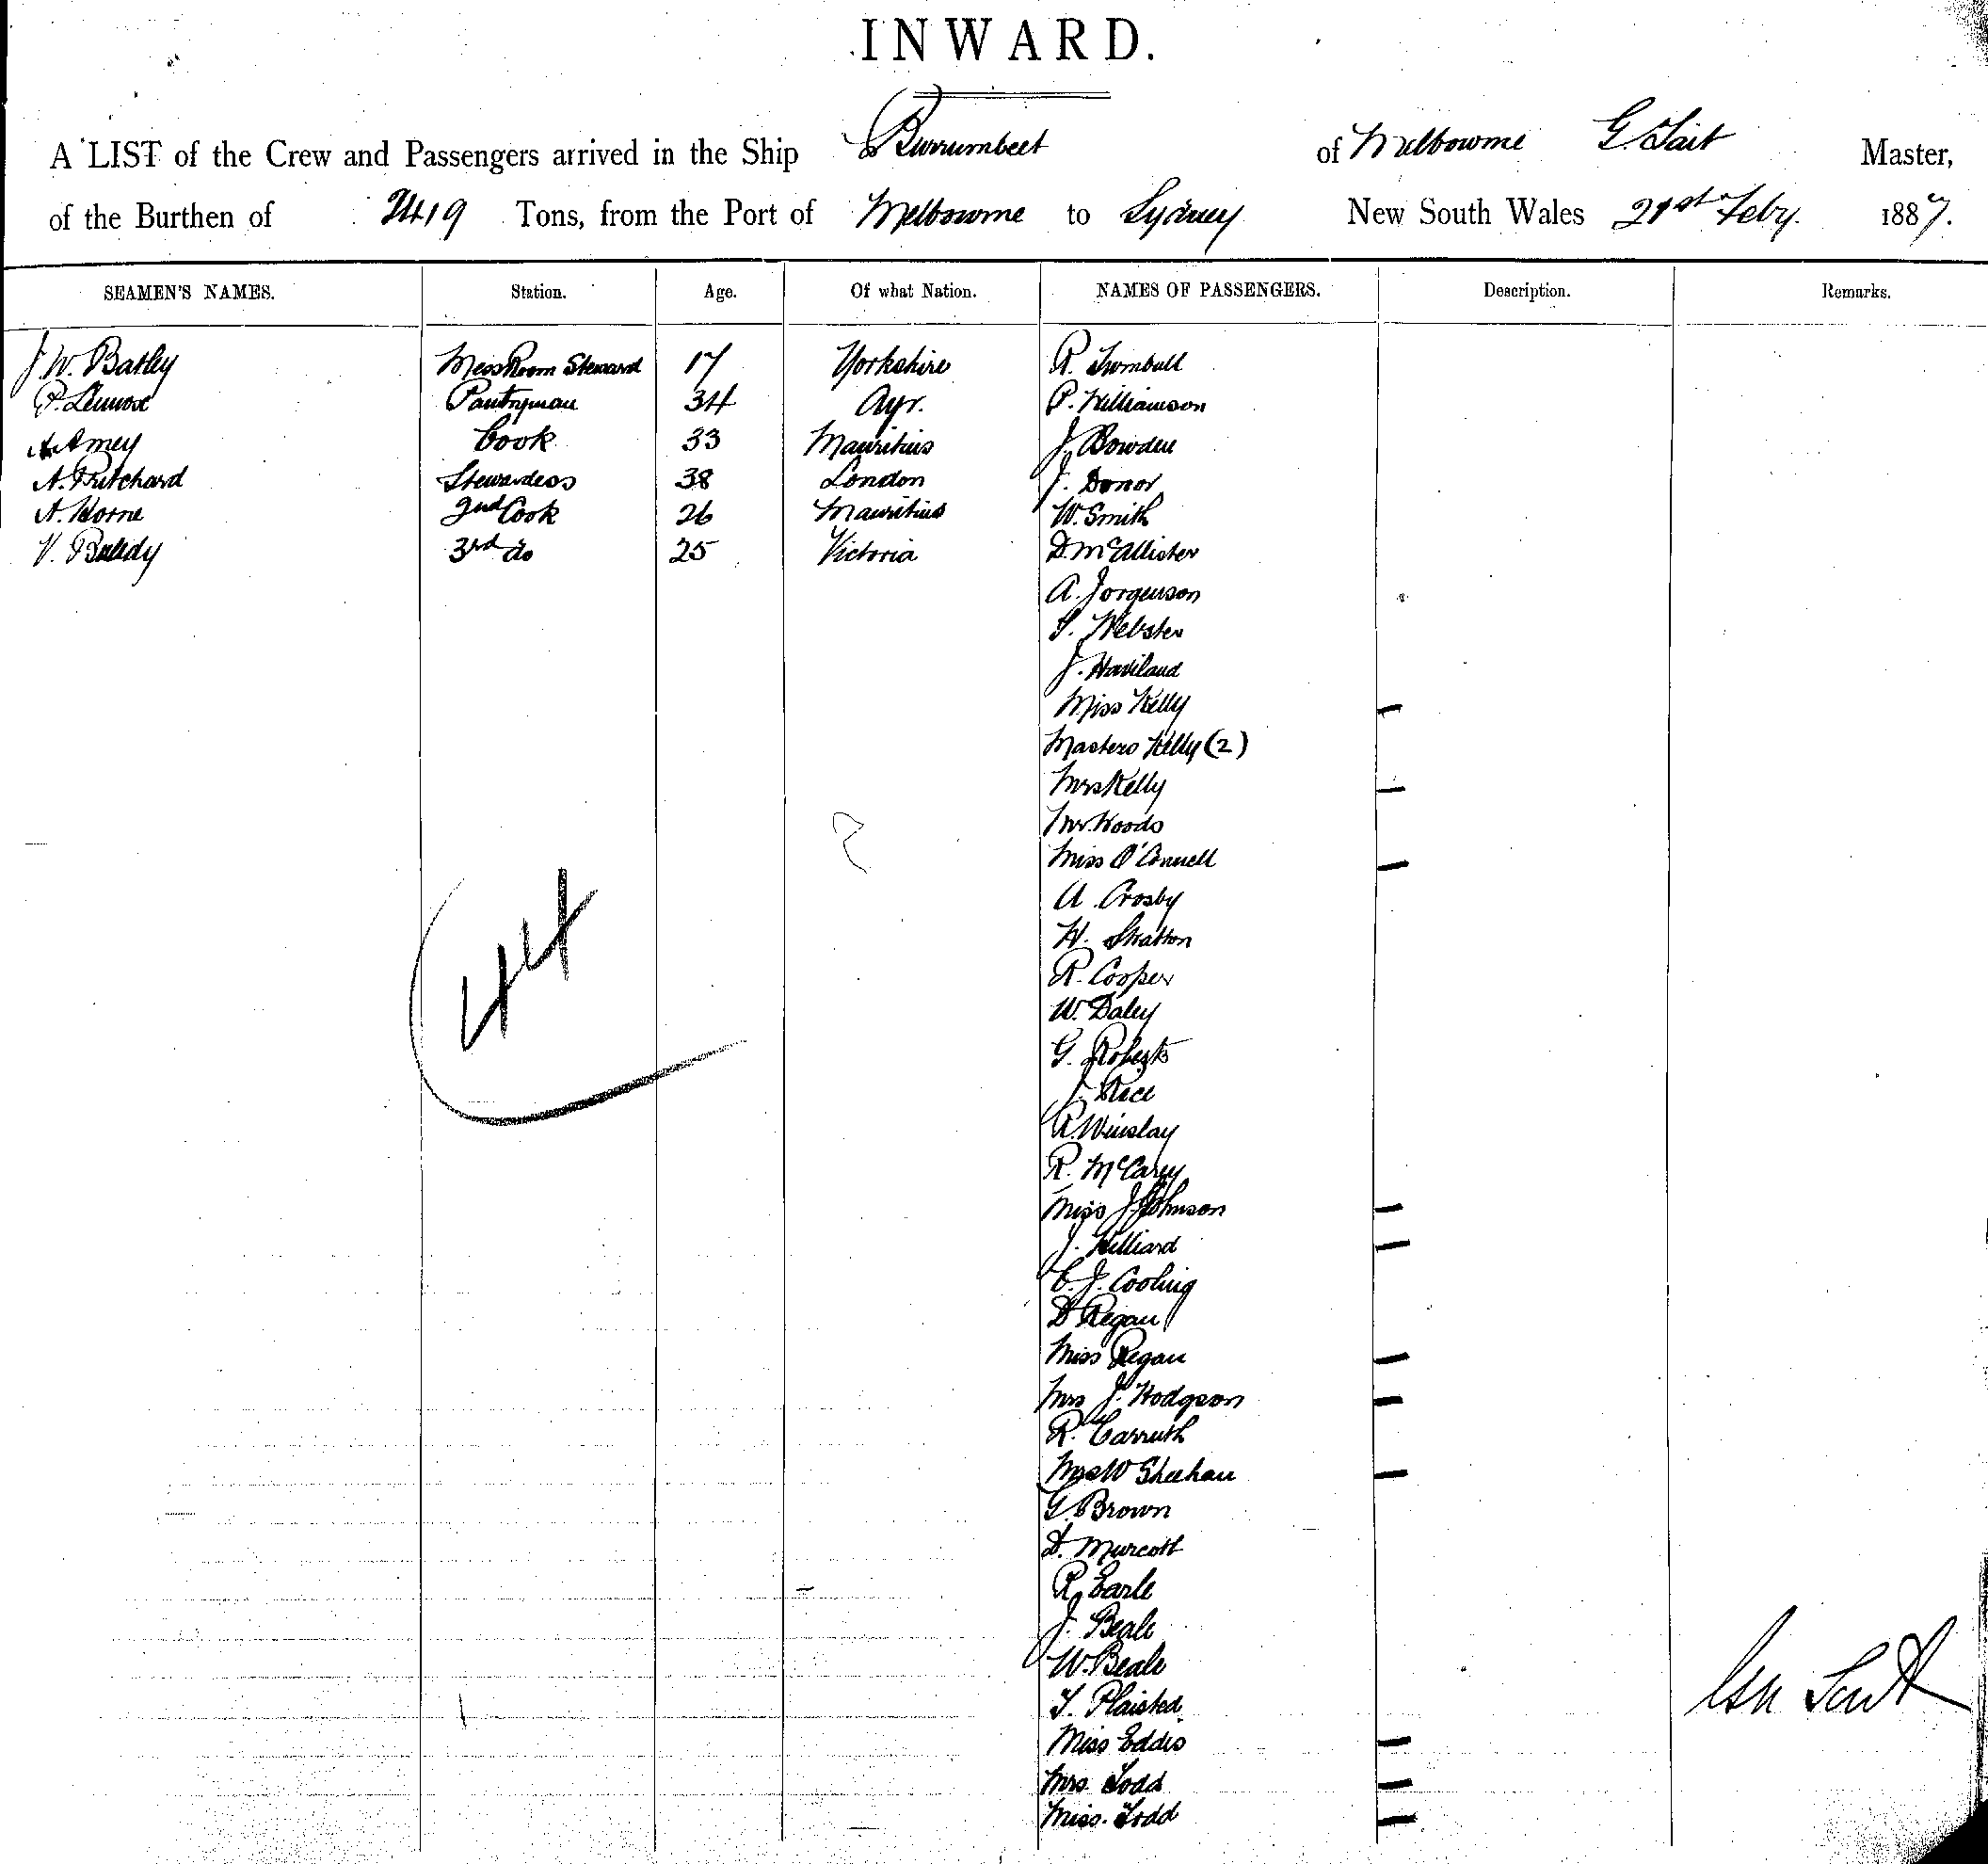 INWARD.
A LIST of the Crew and Passengers arrived in the Ship Burrumbeet of Melbourne G. Tait Master,
of the Burthen of 2419 Tons, from the Port of Melbourne to Sydney New South Wales 21st Feby. 1887.
SEAMEN'S NAMES. Station. Age. Of what Nation. NAMES OF PASSENGERS. Description. Remarks.
J. W. Batley Mess Room Steward 17 Yorkshire R. Turnbull
P. Lennox Pantryman 34 Ayr. P. Williamson
A. Amey Cook 33 Mauritius J. Bowden
A. Pritchard Stewardess 38 London J. Donor
A. Horne 2nd Cook 26 Mauritius W. Smith
V. 3rd do 25 Victoria D. McAllister
A. Jorgenson
S. Webster
J. Haviland
Miss Kelly
Masters Kelly (2)
Mrs Kelly
Mr. Woods
Miss O'Connell
A. Crosby
H. Stratton
R. Cooper
W. Daley
G. Roberts
J. Rice
R. Winslay
R. McCarey
Miss J. Johnson
J. Hilliard
C. J. Cooling
D Regan
Miss Regan
Mrs J. Hodgson
R. Carruth
Mrs W Sheehan
G. Brown
D. Murcott
R. Earle
J. Beale
W. Beale
T. Plaisted
Miss Eddis
Mrs. Todd
Miss. Todd
44